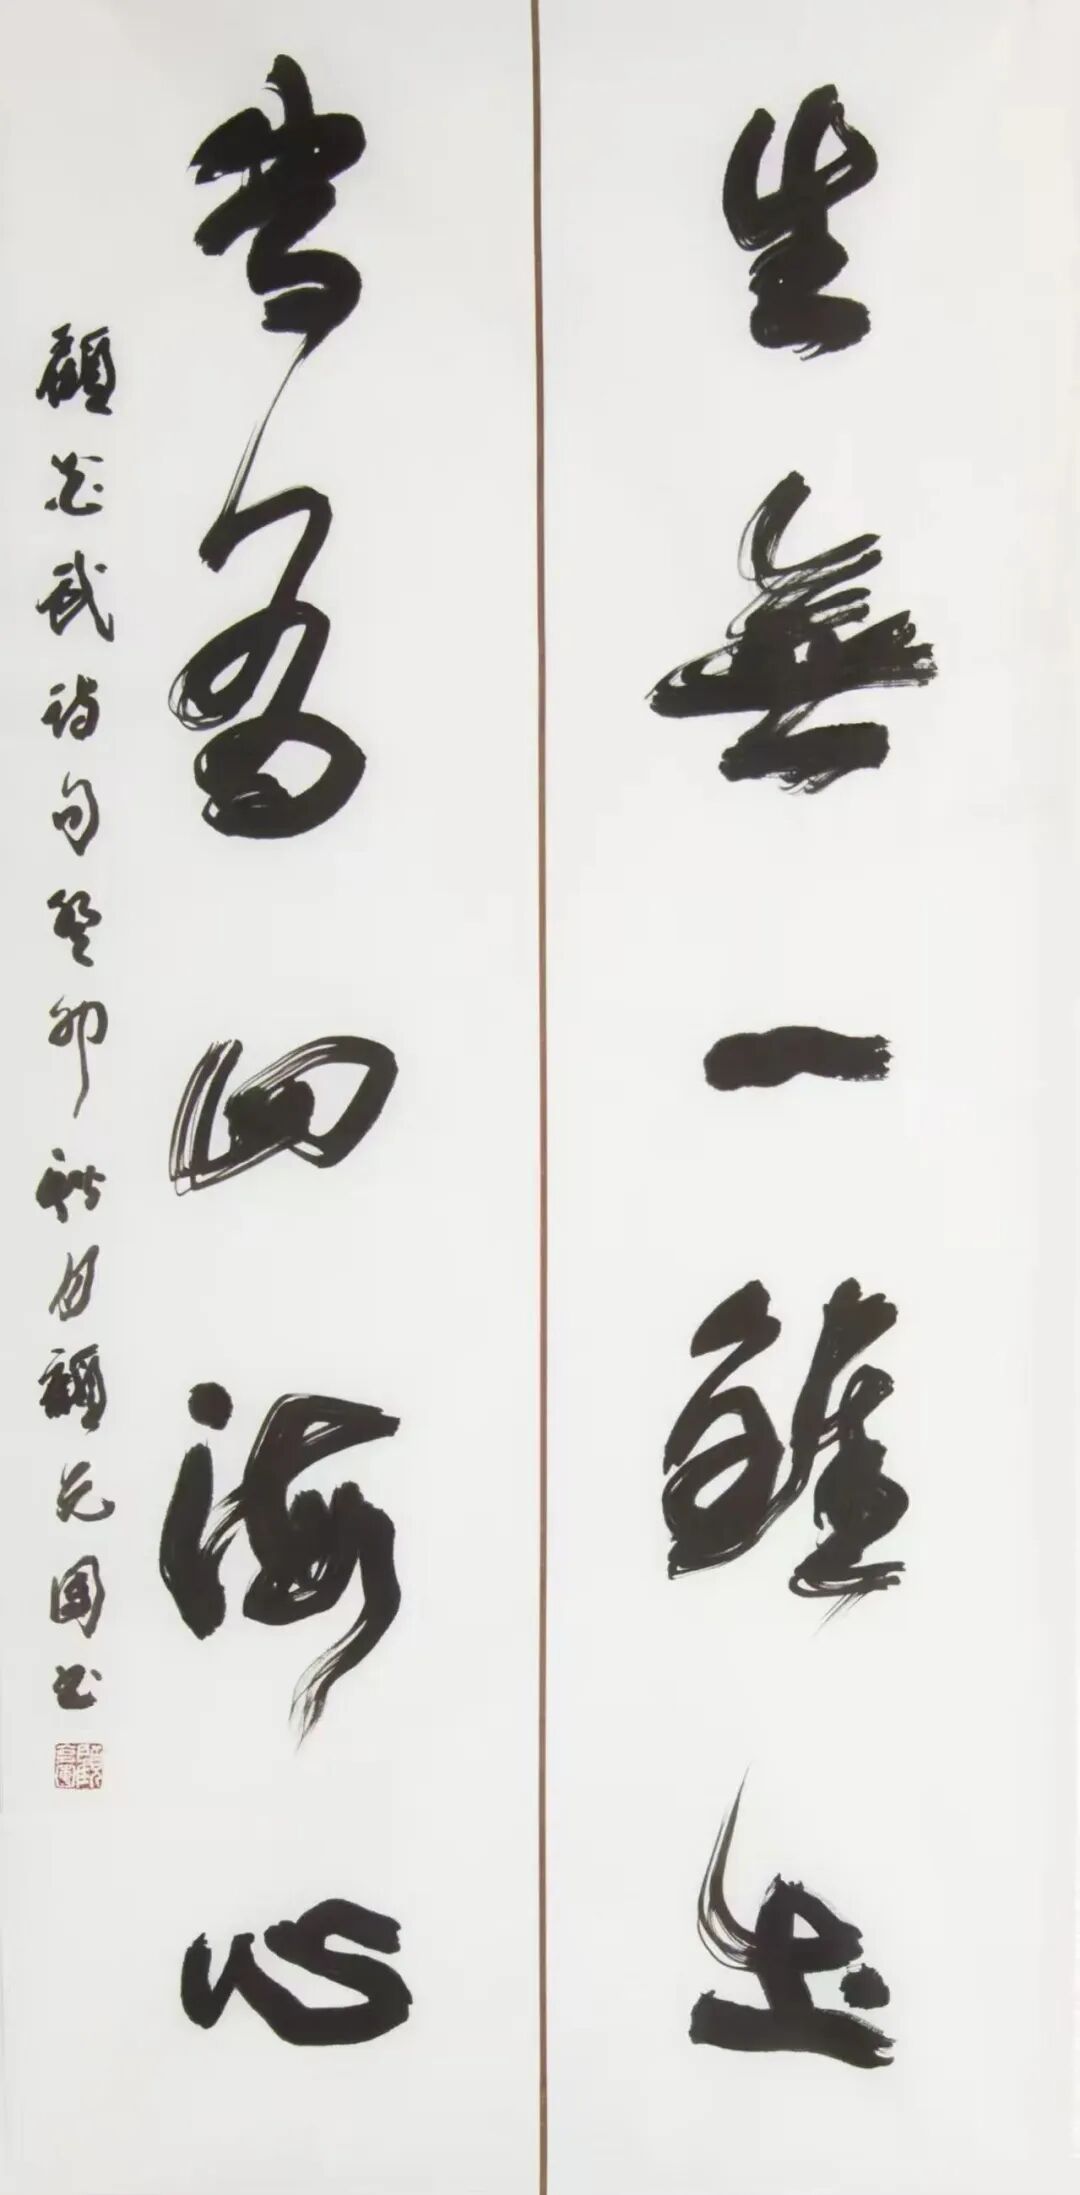 生無一錐土
常有四海心
顧炎武詩句癸卯秋月顧元國書